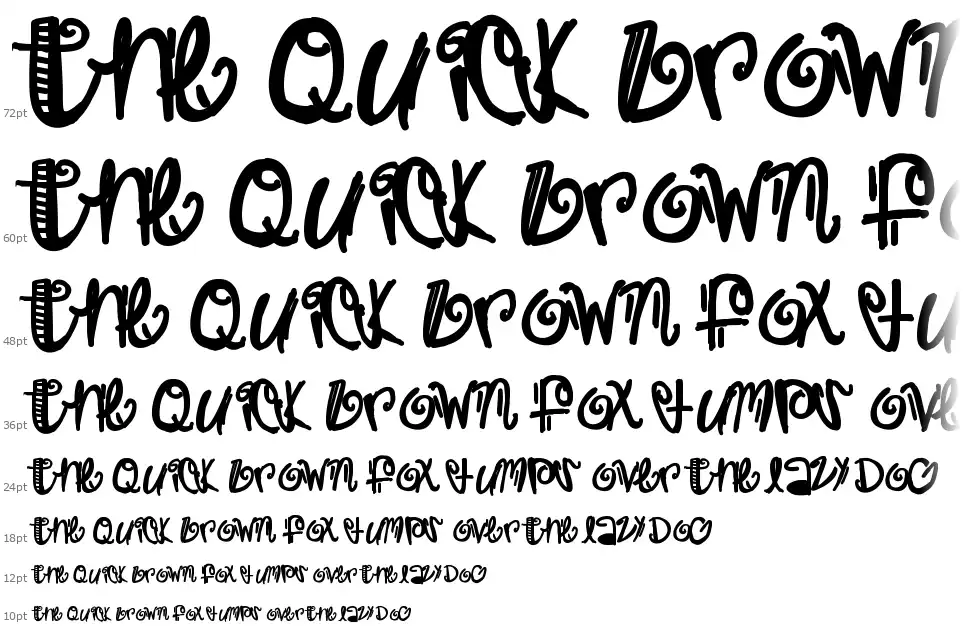 72pt the Quick brown
60pt the Quick brown fo
48pt the Quick brown fox ju
36pt the Quick brown fox jumps ove
24pt the Quick brown fox jumps over the lazy Dog
18pt the Quick brown fox jumps over the lazy Dog
12pt the Quick brown fox jumps over the lazy Dog
10pt the Quick brown fox jumps over the lazy Dog